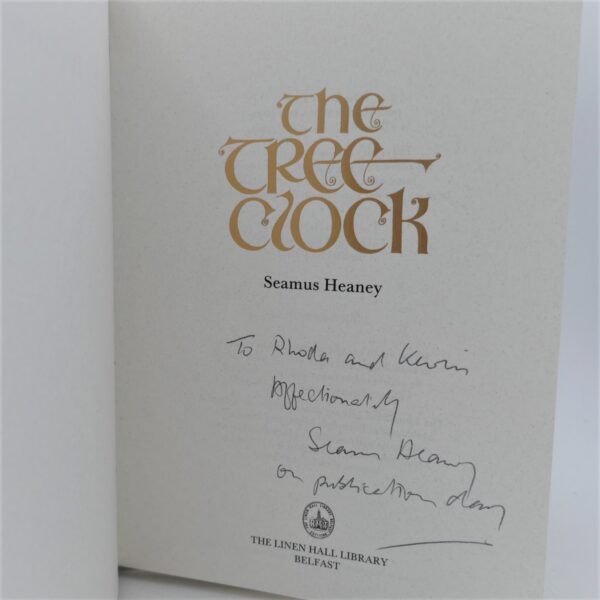 the
tree
clock
Seamus Heaney
To Rhoda and Kevin
Affectionately
Seamus Heaney
on publication day
THE LINEN HALL LIBRARY
BELFAST